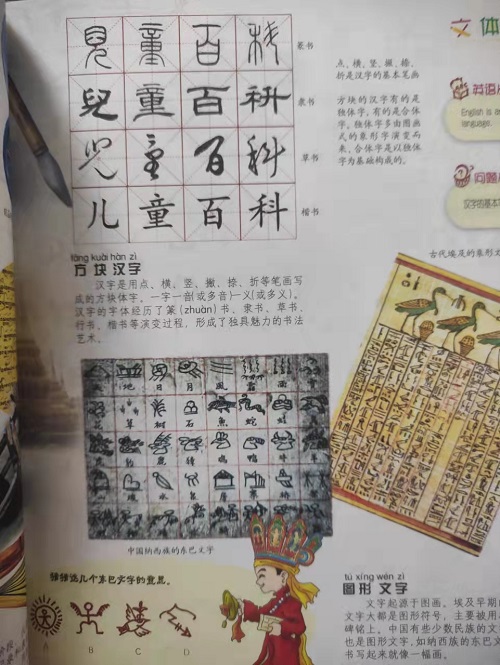 兒 童 百 科 篆书
兒 童 百 科 隶书
兒 童 百 科 草书
儿 童 百 科 楷书
点、横、竖、撇、捺、
折是汉字的基本笔画
方块的汉字有的是
独体字，有的是合体
字。独体字多由图画
式的象形字演变而
来，合体字是以独体
字为基础构成的。
文 体
英语
English is a
language.
问题
汉字的基本
古代埃及的象形文
fāng kuài hàn zì
方 块 汉 字
汉字是用点、横、竖、撇、捺、折等笔画写
成的方块体字。一字一音(或多音)一义(或多义)。
汉字的字体经历了篆(zhuàn)书、隶书、草书、
行书、楷书等演变过程，形成了独具魅力的书法
艺术。
地 日 月 风
草 树 石 鱼 蛇 蛙
鸡 鸭 牛
水
中国纳西族的东巴文字
猜猜这几个东巴文字的意思。
A B C D
tú xíng wén zì
图形 文字
文字起源于图画。埃及早期的
文字大都是图形符号，主要被用
碑铭上。中国有些少数民族的文
也是图形文字，如纳西族的东巴文
书写起来就像一幅画。